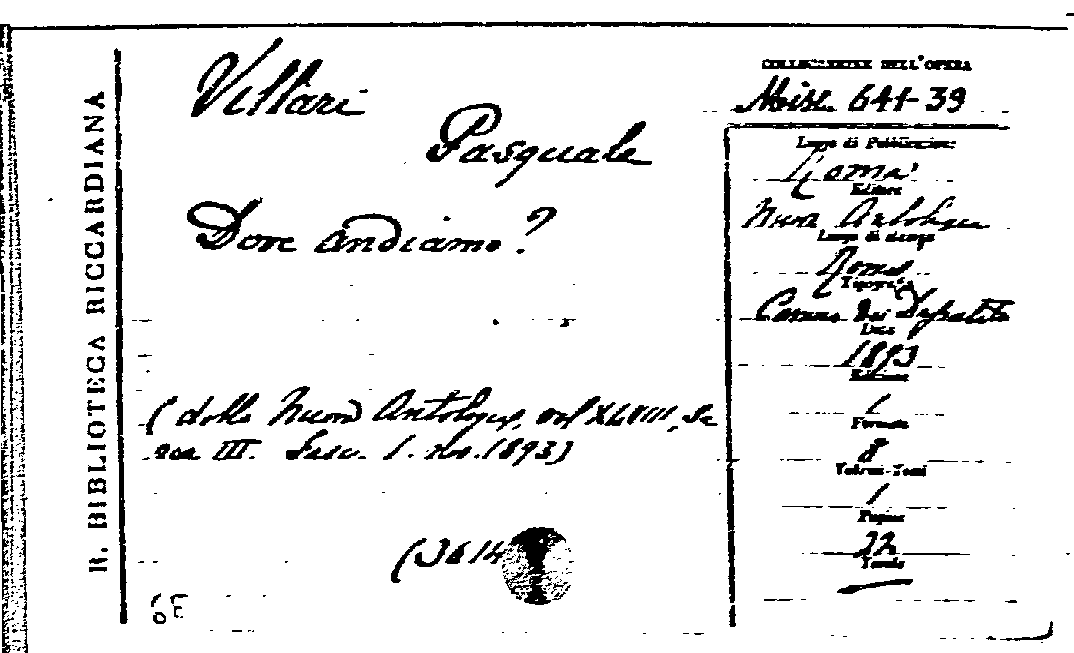 R. BIBLIOTECA RICCARDIANA
Villari
Pasquale
Dove andiamo?
(dalla Nuova Antologia, vol XLVIII, Se
rea III. Fasc. 1. nov. 1893)
(3614
6E
COLLOCAZIONE DELL'OPERA
Misc. 641-39
Luogo di Pubblicazione
Roma
Editore
Nuova Antologia
Luogo di stampa
Roma
Tipografia
Camera dei Deputati
Data
1893
Edizione
1
Formato
8
Volumi-Tomi
1
Pagine
22
Tavole